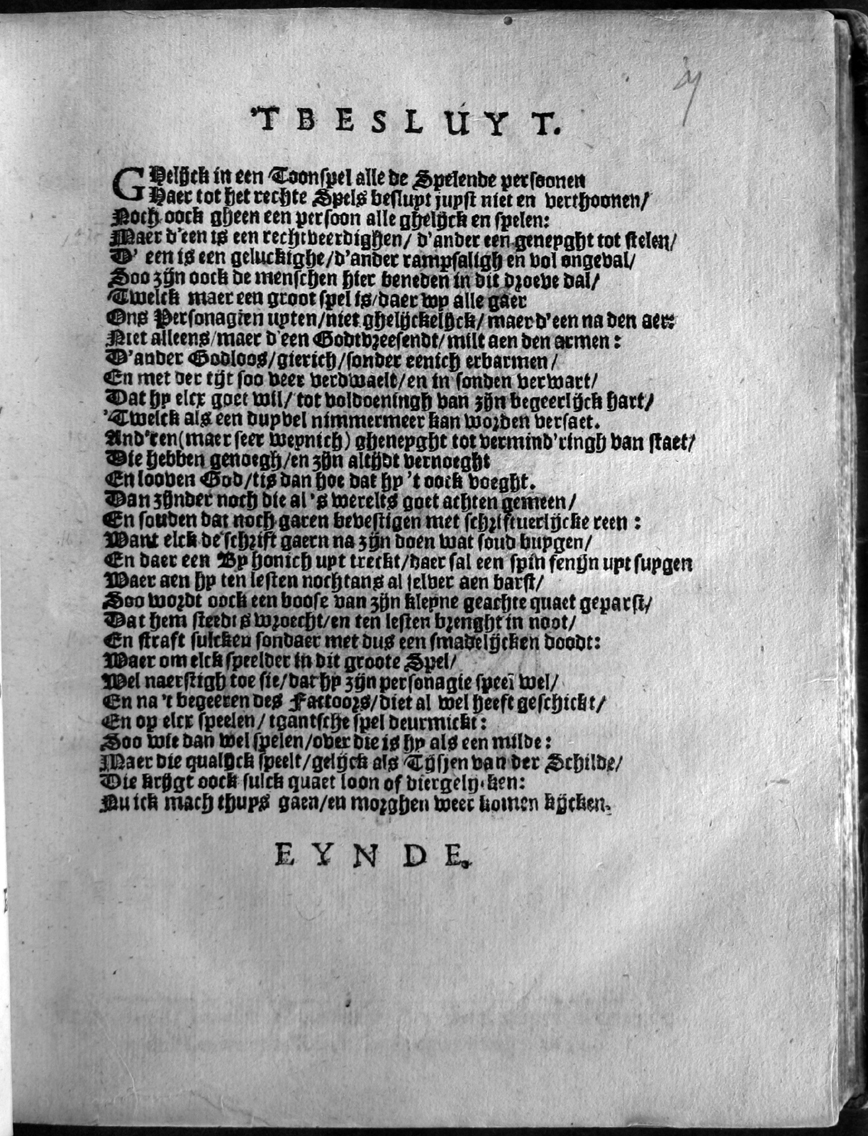 'T BESLUYT.
GHelijck in een Toonspel alle de Spelende persoonen
Haer tot het rechte Spels besluyt juyst niet en verthoonen/
Noch oock gheen een persoon alle ghelijck en spelen:
Maer d'een is een rechtveerdighen/ d'ander een geneyght tot stelen/
D' een is een geluckighe/d'ander rampsaligh en vol ongeval/
Soo zijn oock de menschen hier beneden in dit droeve dal/
Twelck maer een groot spel is/daer wy alle gaer
Ons Personagien uyten/niet ghelijckelijck/maer d'een na den aer:
Niet alleens/maer d'een Godtvreesendt/milt aen den armen:
D'ander Godloos/gierich/sonder eenich erbarmen/
En met der tijt soo veer verdwaelt/en in sonden verwart/
Dat hy elcx goet wil/tot voldoeningh van zijn begeerlijck hart/
'Twelck als een duyvel nimmermeer kan worden versaet.
And'ren(maer seer weynich)gheneyght tot vermind'ringh van staet/
Die hebben genoegh/en zijn altijdt vernoeght
En looven God/tis dan hoe dat hy 't oock voeght.
Dan zijnder noch die al 's werelts goet achten gemeen/
En souden dat noch garen bevestigen met schriftuerlijcke reen:
Want elck de schrift gaern na zijn doen wat soud buygen/
En daer een By honich uyt treckt/daer sal een spin fenijn uyt suygen
Waer aen hy ten lesten nochtans al selver aen barst/
Soo wordt oock een boose van zijn kleyne geachte quaet geparst/
Dat hem steedts wroecht/en ten lesten brenght in noot/
En straft sulcken sondaer met dus een smadelijcken doodt:
Waer om elck speelder in dit groote Spel/
Wel naerstigh toe sie/dat hy zijn personagie speel wel/
En na 't begeeren des Factoors/diet al wel heeft geschickt/
En op elcx speelen/tgantsche spel deurmickt:
Soo wie dan wel spelen/over die is hy als een milde:
Maer die qualijck speelt/gelijck als Tijsjen van der Schilde/
Die krijgt oock sulck quaet loon of diergelijcken:
Nu ick mach thuys gaen/en morghen weer komen kijcken.
EYNDE.